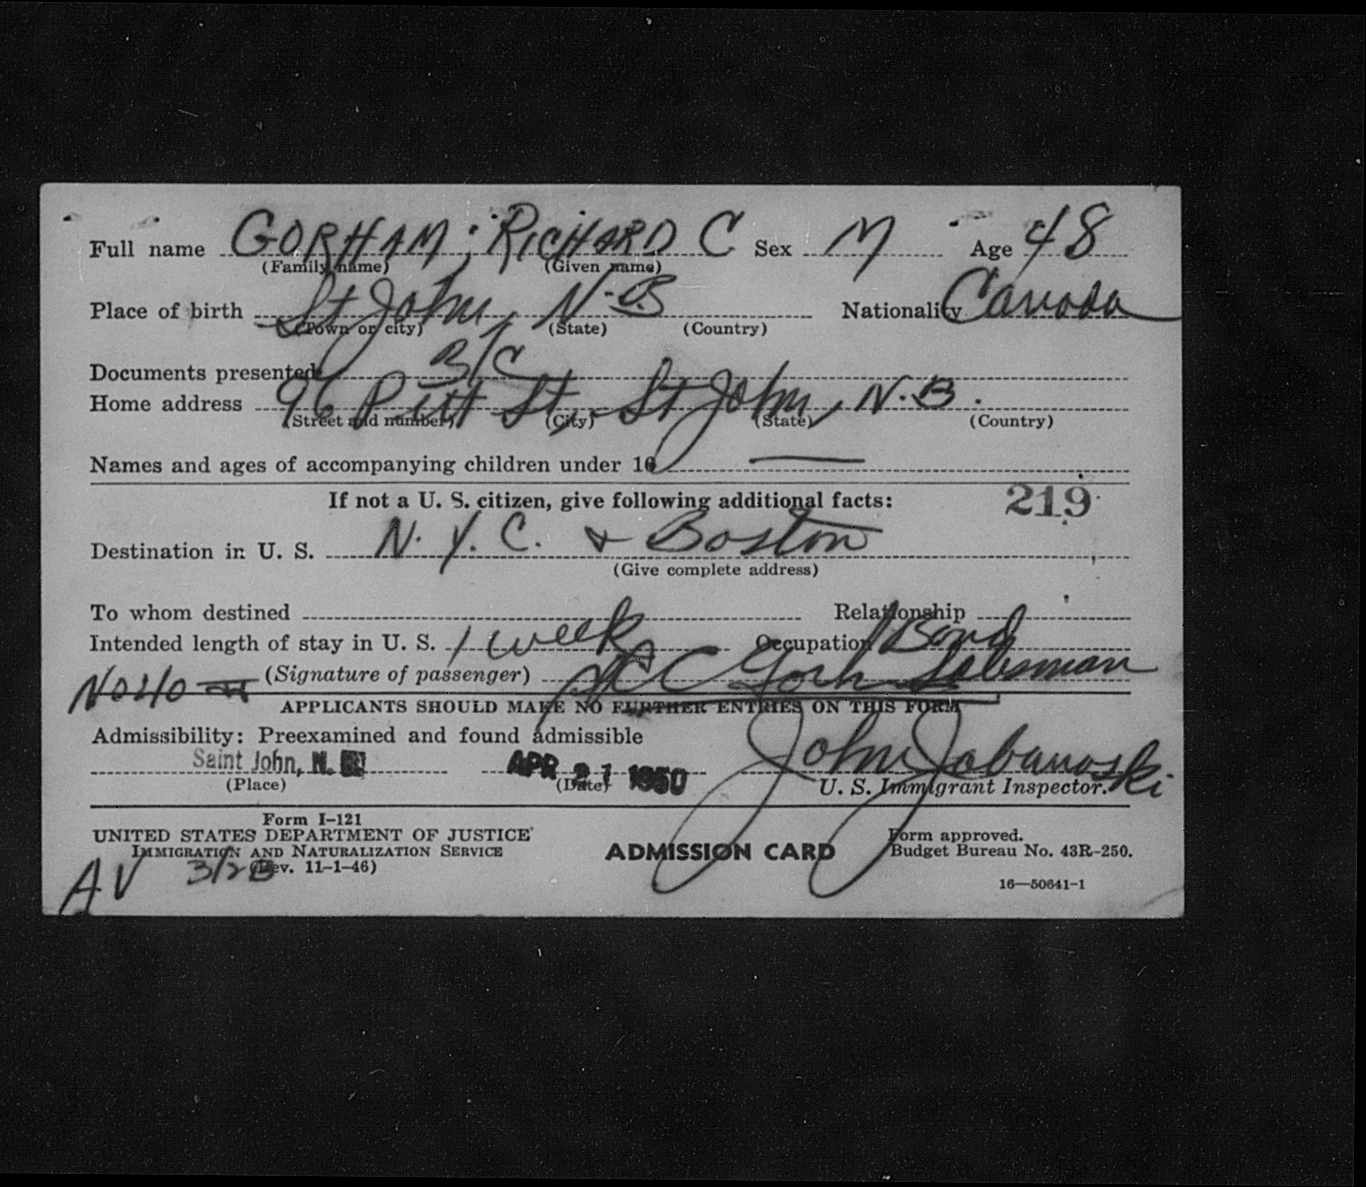 Full name GORHAM, RICHARD C Sex M Age 48
(Family name) (Given name)
Place of birth St John, N.B Nationality Canada
(Town or city) (State) (Country)
Documents presented B/C
Home address 96 Pitt St, St John, N.B.
(Street and number) (City) (State) (Country)
Names and ages of accompanying children under 16 —
If not a U. S. citizen, give following additional facts: 219
Destination in U. S. N. Y. C. & Boston
(Give complete address)
To whom destined Relationship
Intended length of stay in U. S. 1 week Occupation Bond
(Signature of passenger) Salesman
APPLICANTS SHOULD MAKE NO FURTHER ENTRIES ON THIS FORM
Admissibility: Preexamined and found admissible
Saint John, N. B. APR 21 1950 John Jabanoski
(Place) (Date) U. S. Immigrant Inspector.
Form I-121
UNITED STATES DEPARTMENT OF JUSTICE
IMMIGRATION AND NATURALIZATION SERVICE
(Rev. 11-1-46)
AV
ADMISSION CARD
Form approved.
Budget Bureau No. 43R-250.
16—50641-1